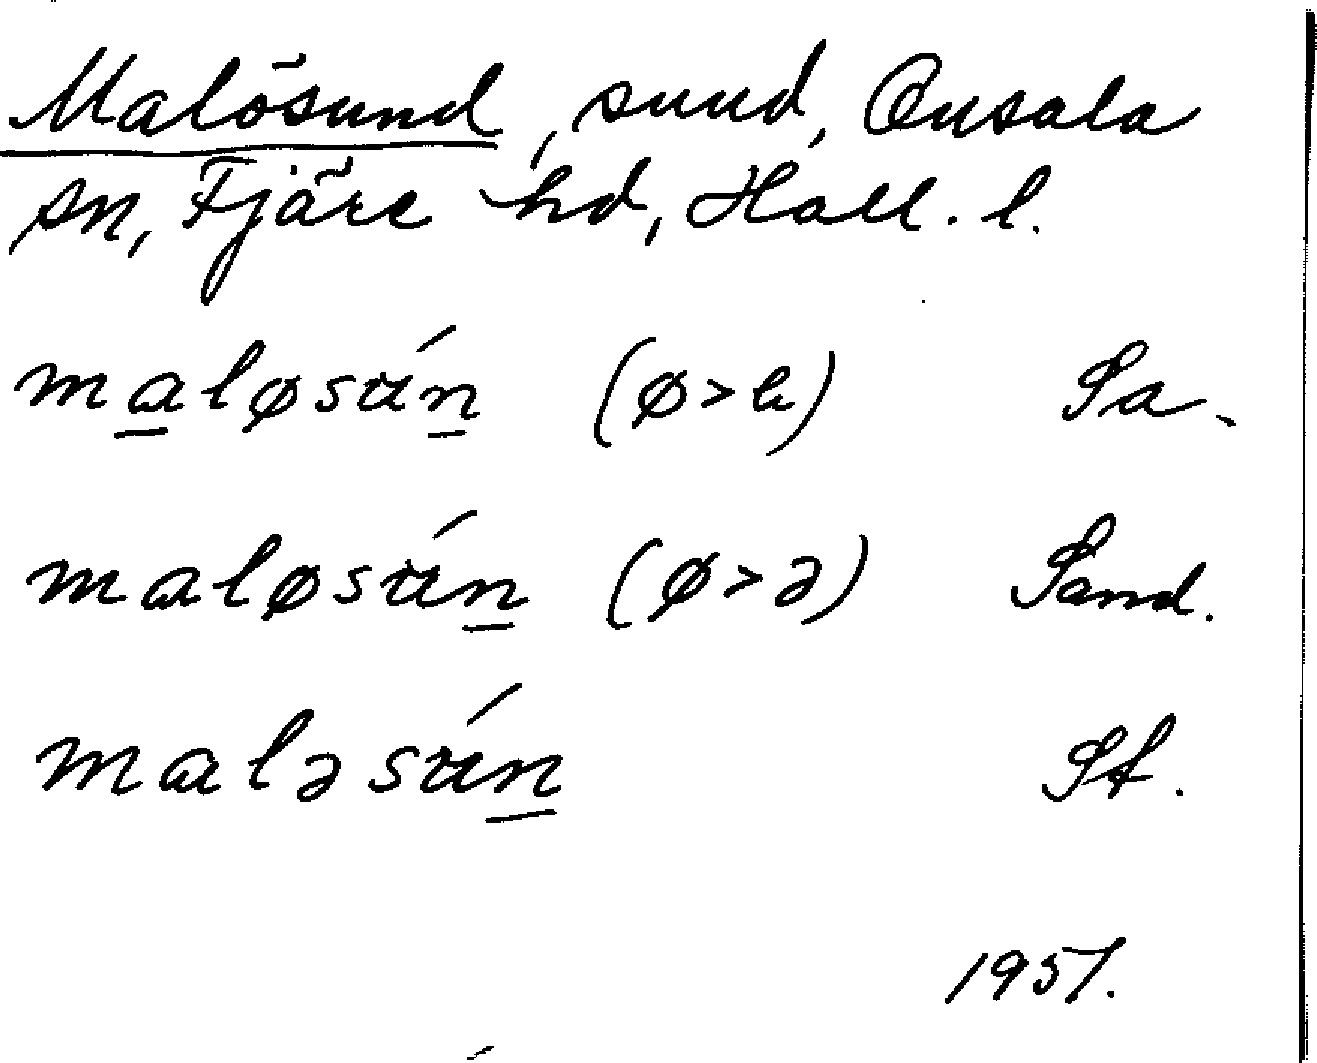 Malösund, sund, Onsala
sn, Fjäre hd, Hall. l.
maløsún (ø>ꬱ) Sa.
maløsún (ø>ə) Sand.
maləsún St.
1951.